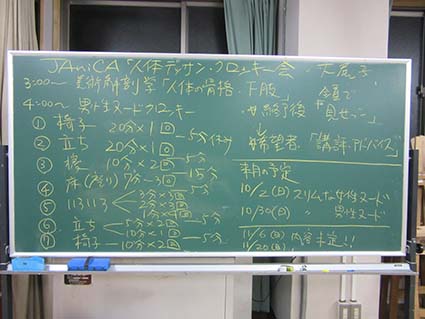 JAniCA 人体デッサン・クロッキー会
3:00〜 美術解剖学「人体の骨格・下肢」
4:00〜 男性ヌードクロッキー
① 椅子 20分×1回 5分休み
② 立ち 20分×1回
③ 10分×2回 5分
④ 床(座り) 7分 3回 15分
⑤ 5分
⑥ 立ち 5分×2回
⑦ 椅子 10分×2回 5分
終了後
全員で
"見せっこ"
↓
希望者「講評・アドバイス」
来月の予定
10/2(日) スリムな女性ヌード
10/30(日) 〃 男性ヌード
11/6(日) 内容未定!!
11/20(日)